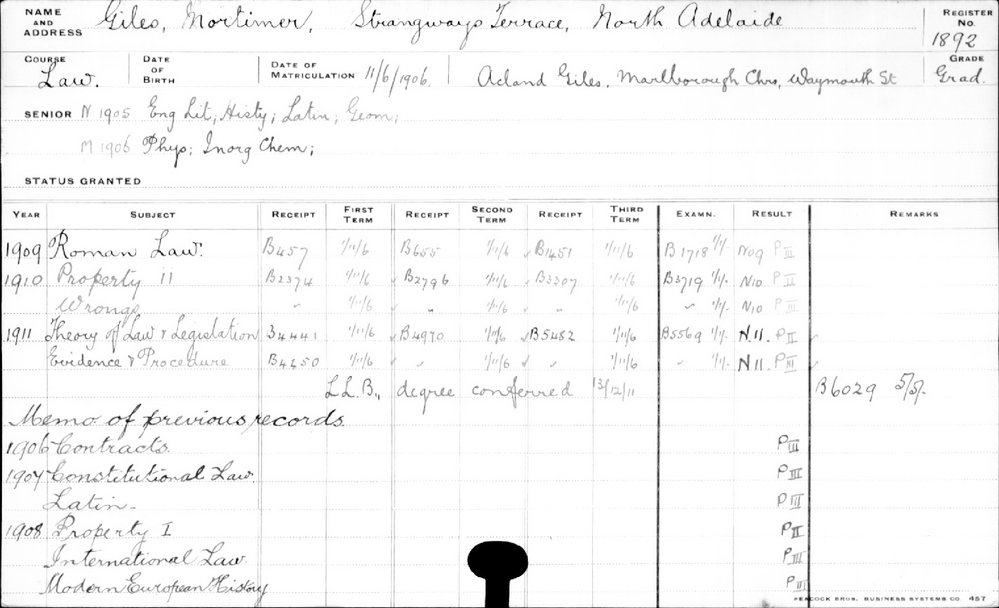 NAME AND ADDRESS Giles, Mortimer, Strangways Terrace, North Adelaide REGISTER No. 1892
COURSE Law. DATE OF BIRTH DATE OF MATRICULATION 11/6/1906. Acland Giles, Marlborough Chrs, Waymouth St GRADE Grad.
SENIOR N 1905 Eng Lit; Histy; Latin; Geom;
M 1906 Phys; Inorg Chem;
STATUS GRANTED
YEAR SUBJECT RECEIPT FIRST TERM RECEIPT SECOND TERM RECEIPT THIRD TERM EXAMN. RESULT REMARKS
1909 Roman Law. B457 1/11/6 B655 1/11/6 B1451 1/11/6 B1718 1/1/- N09 P III
1910 Property II B2374 1/11/6 B2796 1/11/6 B3307 1/11/6 B3719 1/1/- N10 P II
Wrongs " 1/11/6 " 1/11/6 " 1/11/6 " 1/1/- N10 P III
1911 Theory of Law & Legislation B4441 1/11/6 B4970 1/11/6 B5482 1/11/6 B5569 1/1/- N.11. P II
Evidence & Procedure B4450 1/11/6 " 1/11/6 " 1/11/6 " 1/1/- N11. P III
L.L.B., degree conferred 13/12/11 B6029 5/5/-
Memo of previous records
1906 Contracts. P III
1907 Constitutional Law. P III
Latin. P III
1908 Property I P II
International Law P III
Modern European History P III
PEACOCK BROS. BUSINESS SYSTEMS CO. 457